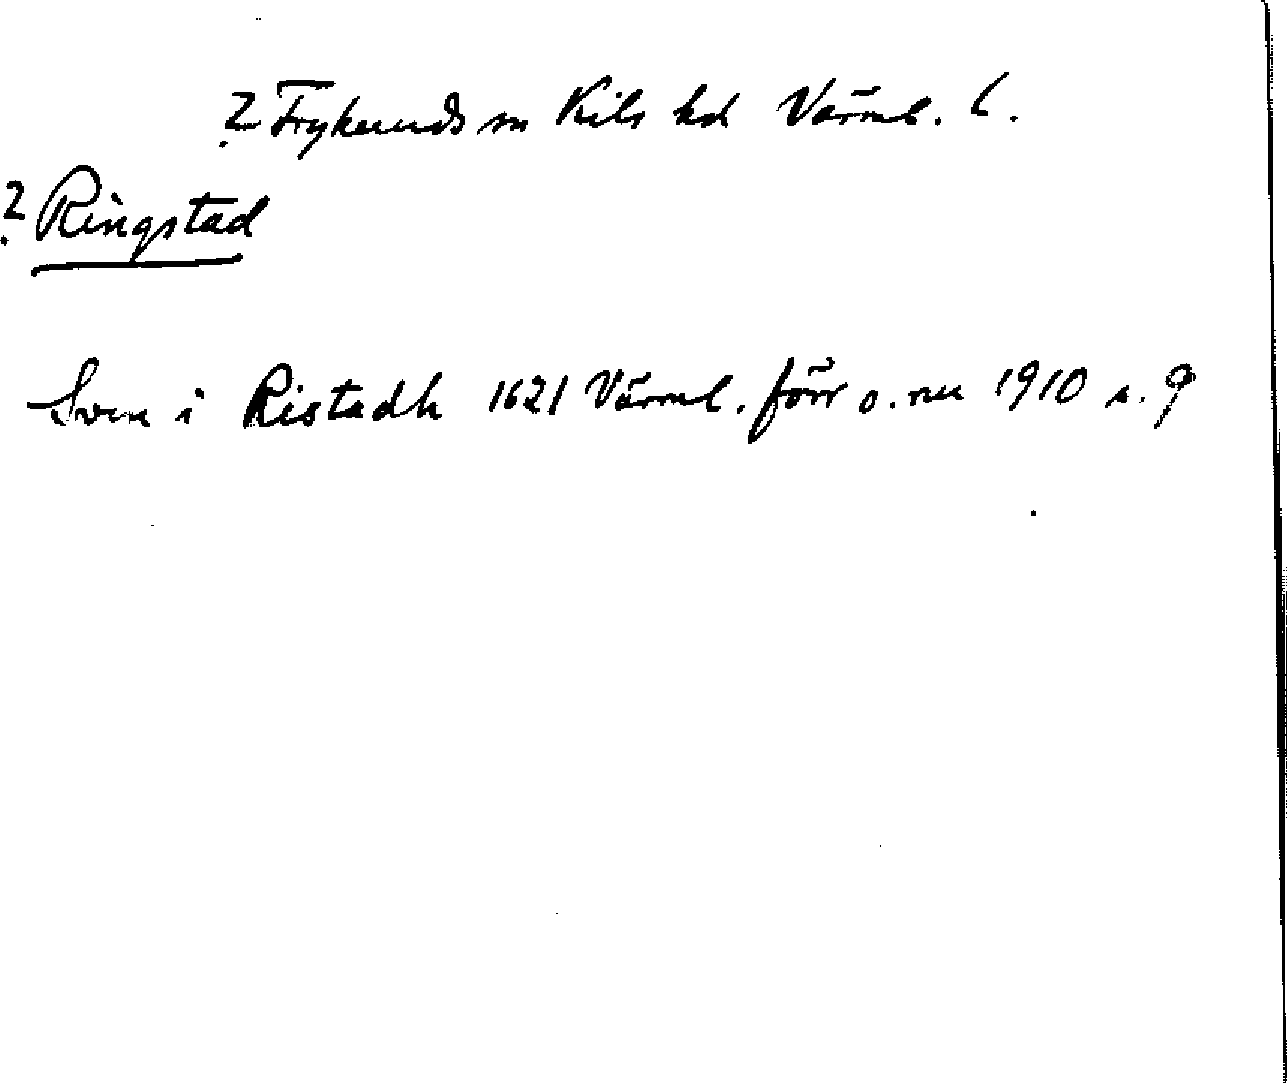 ? Frykeruds sn Kils hd Värml. l.
? Ringstad
Sven i Ristadh 1621 Värml. förr o. nu 1910 s. 9